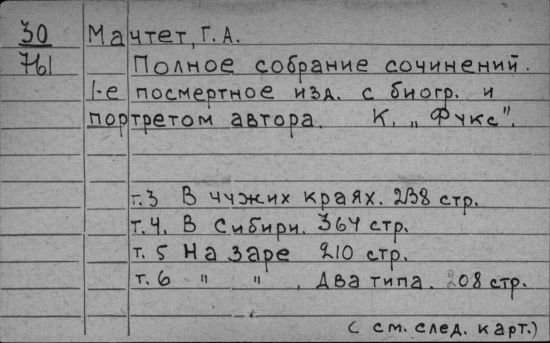 30 Мачтет, Г.А.
761 Полное собрание сочинений.
1-е посмертное изд. с биогр. и
портретом автора. К. „Фукс".
т.3 В чужих краях. 238 стр.
т.4. В Сибири. 364 стр.
т.5 На заре 210 стр.
т.6 " " , Два типа. 208 стр.
( см. след. карт.)